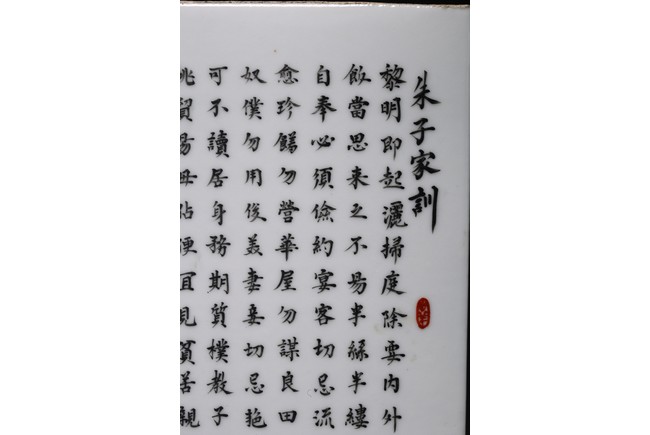 朱子家訓
黎明即起灑掃庭除要内外
飯當思来之不易半絲半縷
自奉必須儉約宴客切忌流
愈珍饈勿營華屋勿謀良田
奴僕勿用俊美妻妾切忌艷
可不讀居身務期質樸教子
挑貿易毋佔便宜見貧苦親